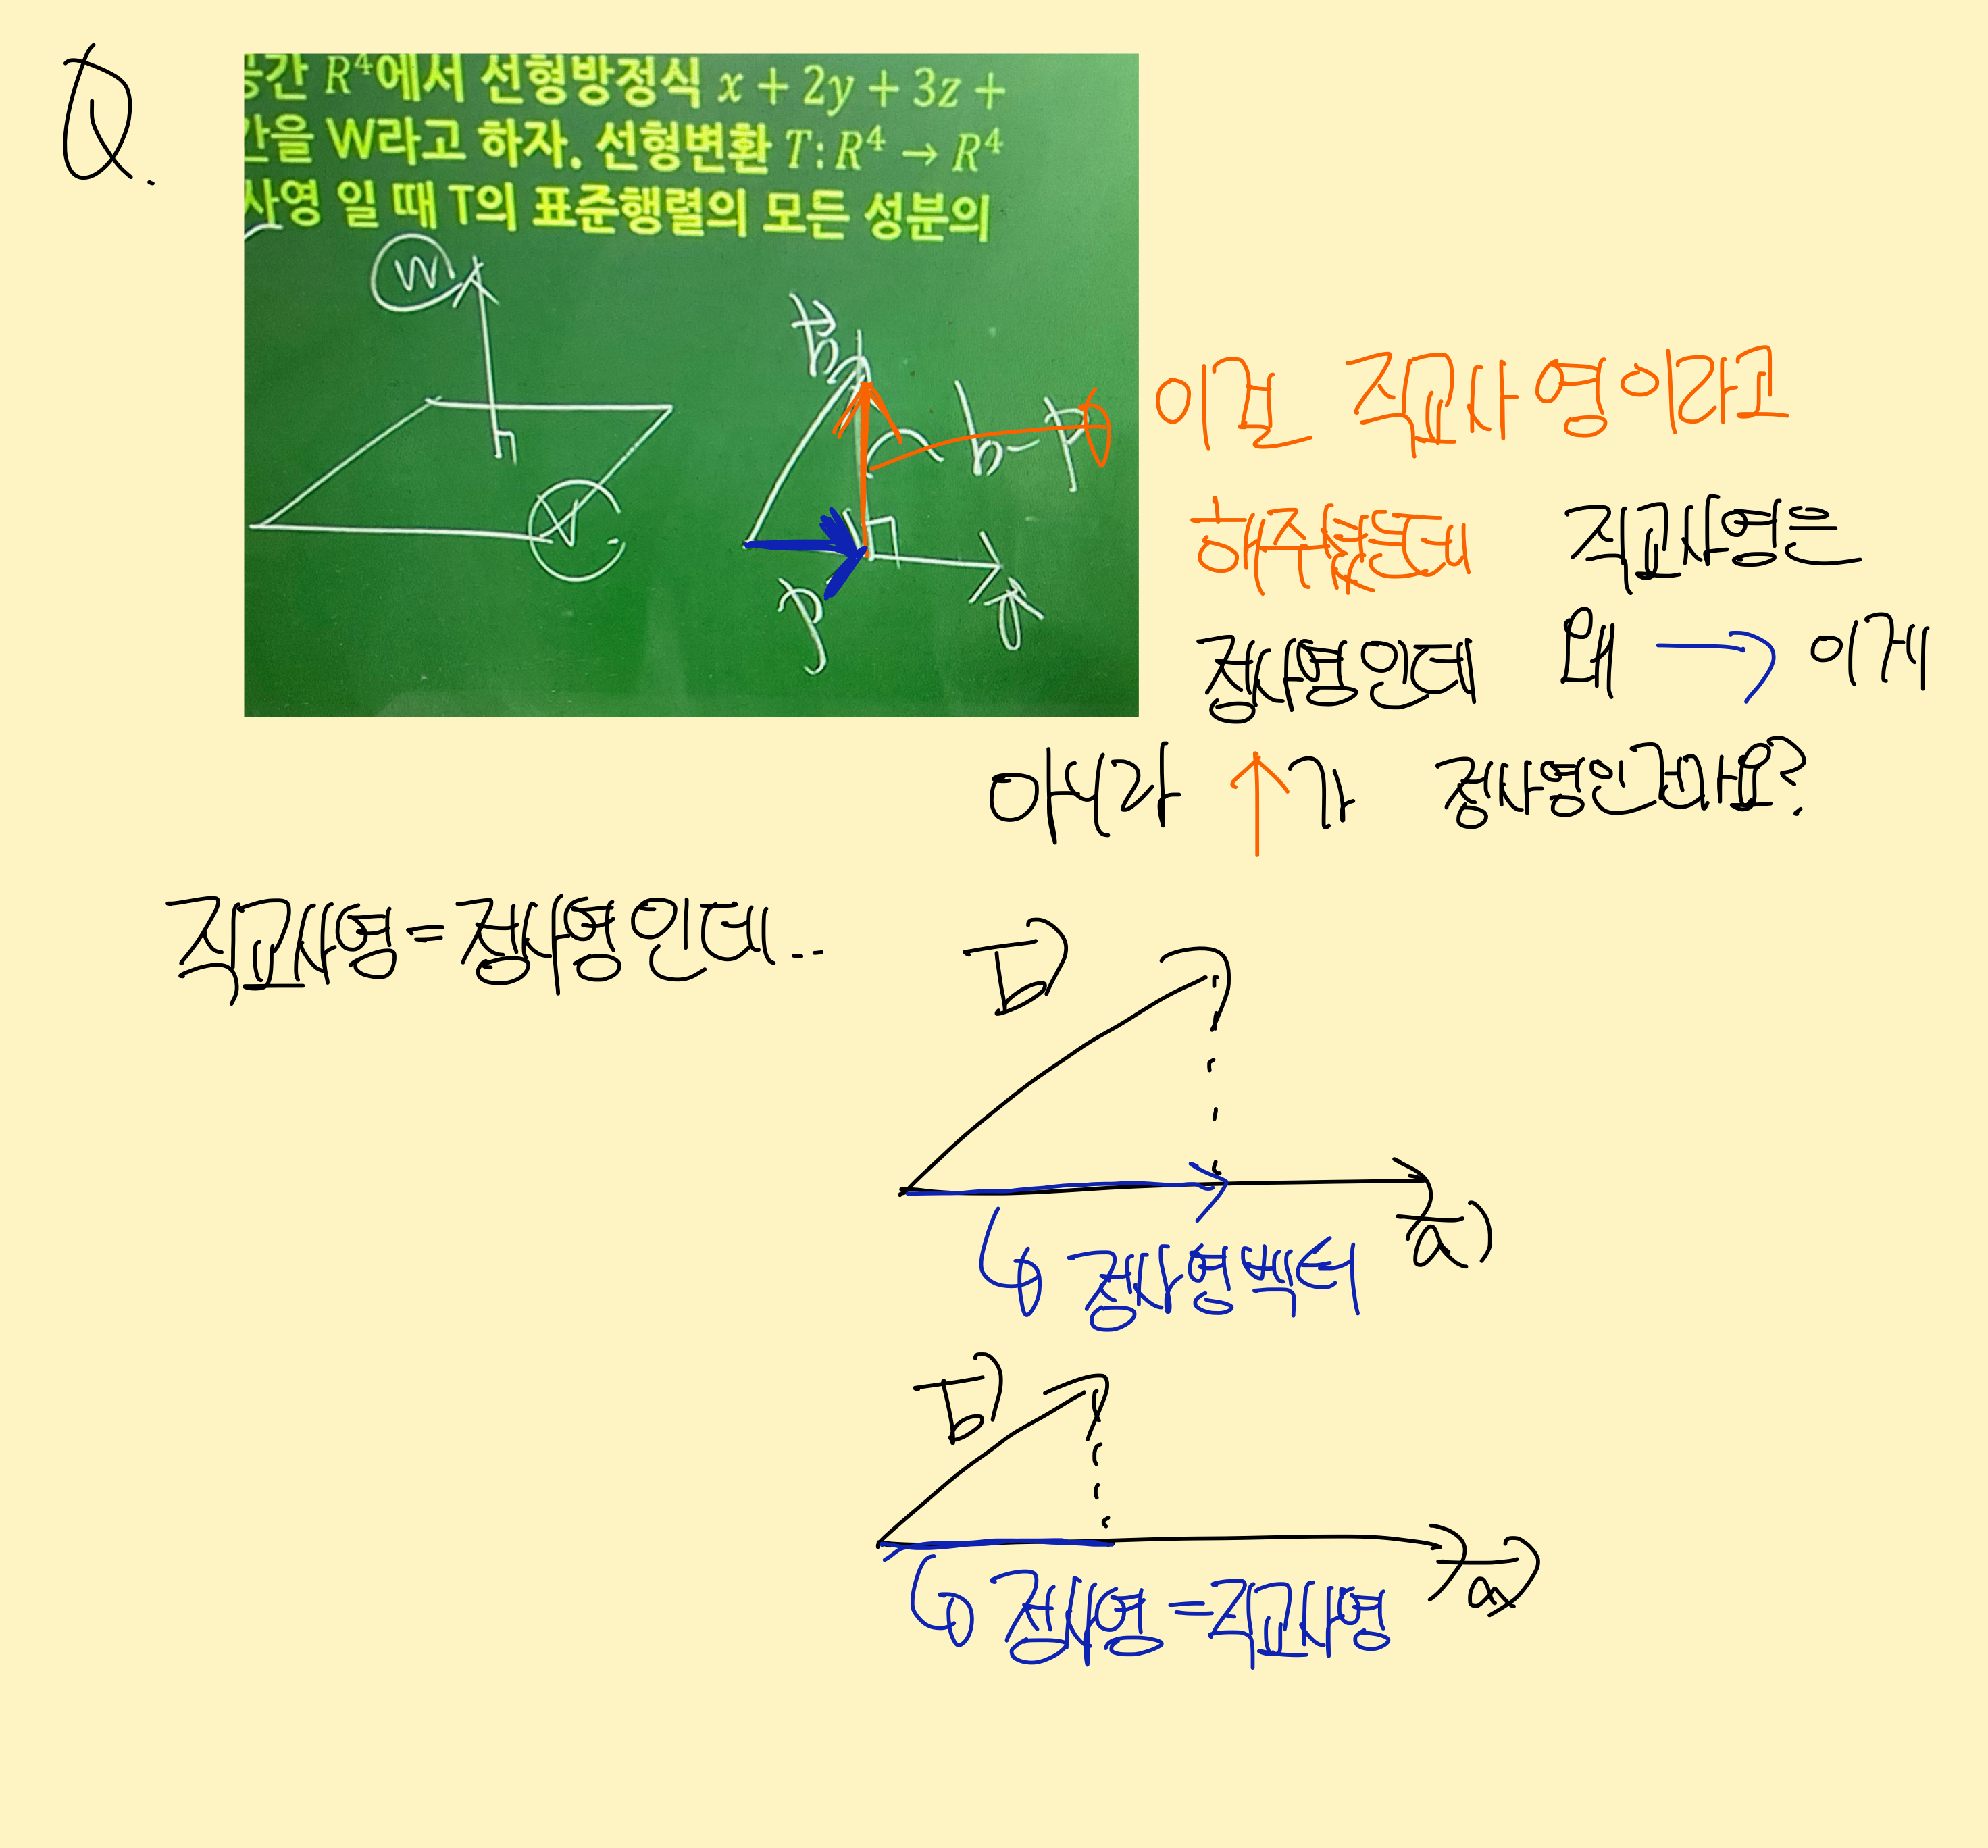 Q.
공간 R⁴에서 선형방정식 x + 2y + 3z +
간을 W라고 하자. 선형변환 T: R⁴ → R⁴
사영 일 때 T의 표준행렬의 모든 성분의
W
V
b
b-p
p
a
이걸 직교사영이라고
해주셨는데 직교사영은
정사영인데 왜 → 이게
아니라 ↑가 정사영인건가요?
직교사영=정사영인데...
b
a
정사영벡터
b
a
정사영=직교사영